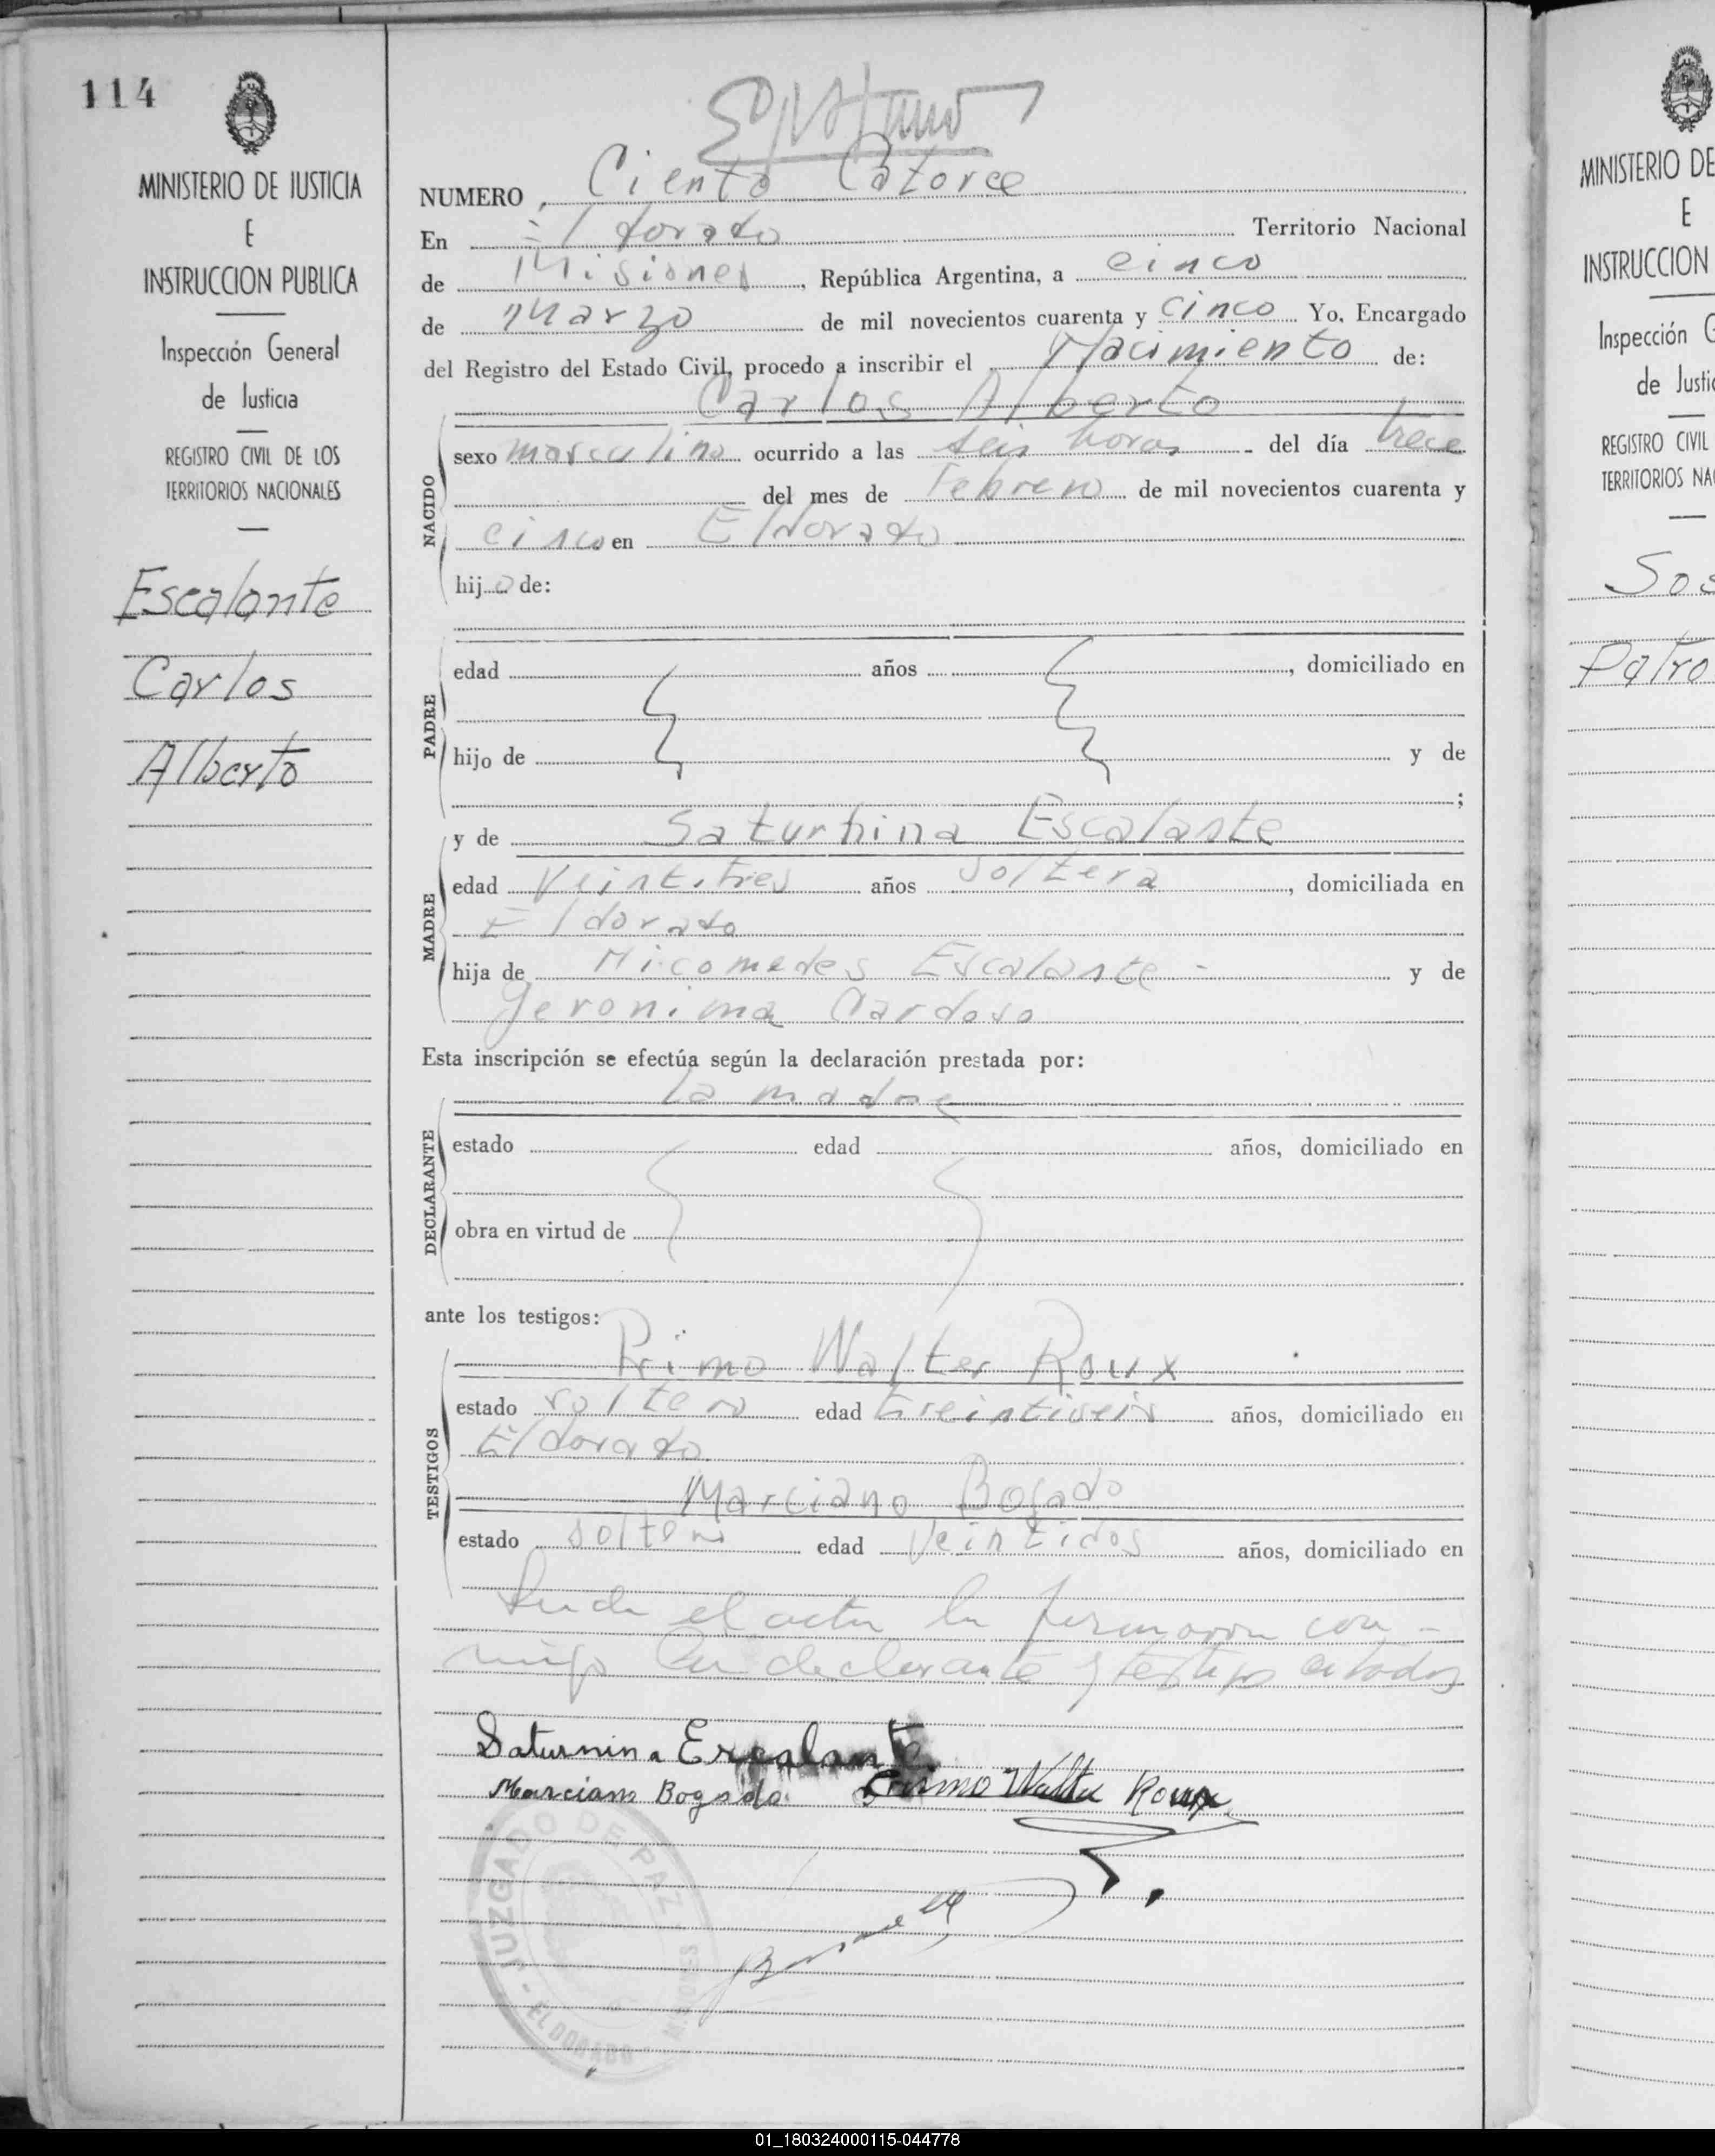 114
MINISTERIO DE JUSTICIA
E
INSTRUCCION PUBLICA
Inspección General
de Justicia
REGISTRO CIVIL DE LOS
TERRITORIOS NACIONALES
Escalante
Carlos
Alberto
NUMERO Ciento Catorce
En Eldorado Territorio Nacional
de Misiones, República Argentina, a cinco
de Marzo de mil novecientos cuarenta y cinco Yo, Encargado
del Registro del Estado Civil, procedo a inscribir el Nacimiento de:
Carlos Alberto
NACIDO
sexo masculino ocurrido a las seis horas del día trece
del mes de Febrero de mil novecientos cuarenta y
cinco en Eldorado
hijo de:
PADRE
edad años , domiciliado en
hijo de y de
;
MADRE
y de Saturnina Escalante
edad Veintitres años Soltera, domiciliada en
Eldorado
hija de Nicomedes Escalante - y de
Geronima Cardoso
Esta inscripción se efectúa según la declaración prestada por:
la madre
DECLARANTE
estado edad años, domiciliado en
obra en virtud de
ante los testigos:
TESTIGOS
Primo Walter Roux
estado soltero edad treintiseis años, domiciliado en
Eldorado
Marciano Bogado
estado soltero edad Veintidos años, domiciliado en
el acta la firmaron con-
migo la declarante y testigos citados
Saturnina Escalante
Marciano Bogado Primo Walter Roux
JUZGADO DE PAZ
- ELDORADO - MISIONES
MINISTERIO DE
E
INSTRUCCION
Inspección G
de Justic
REGISTRO CIVIL
TERRITORIOS NA
Sos
Patro
01_180324000115-044778